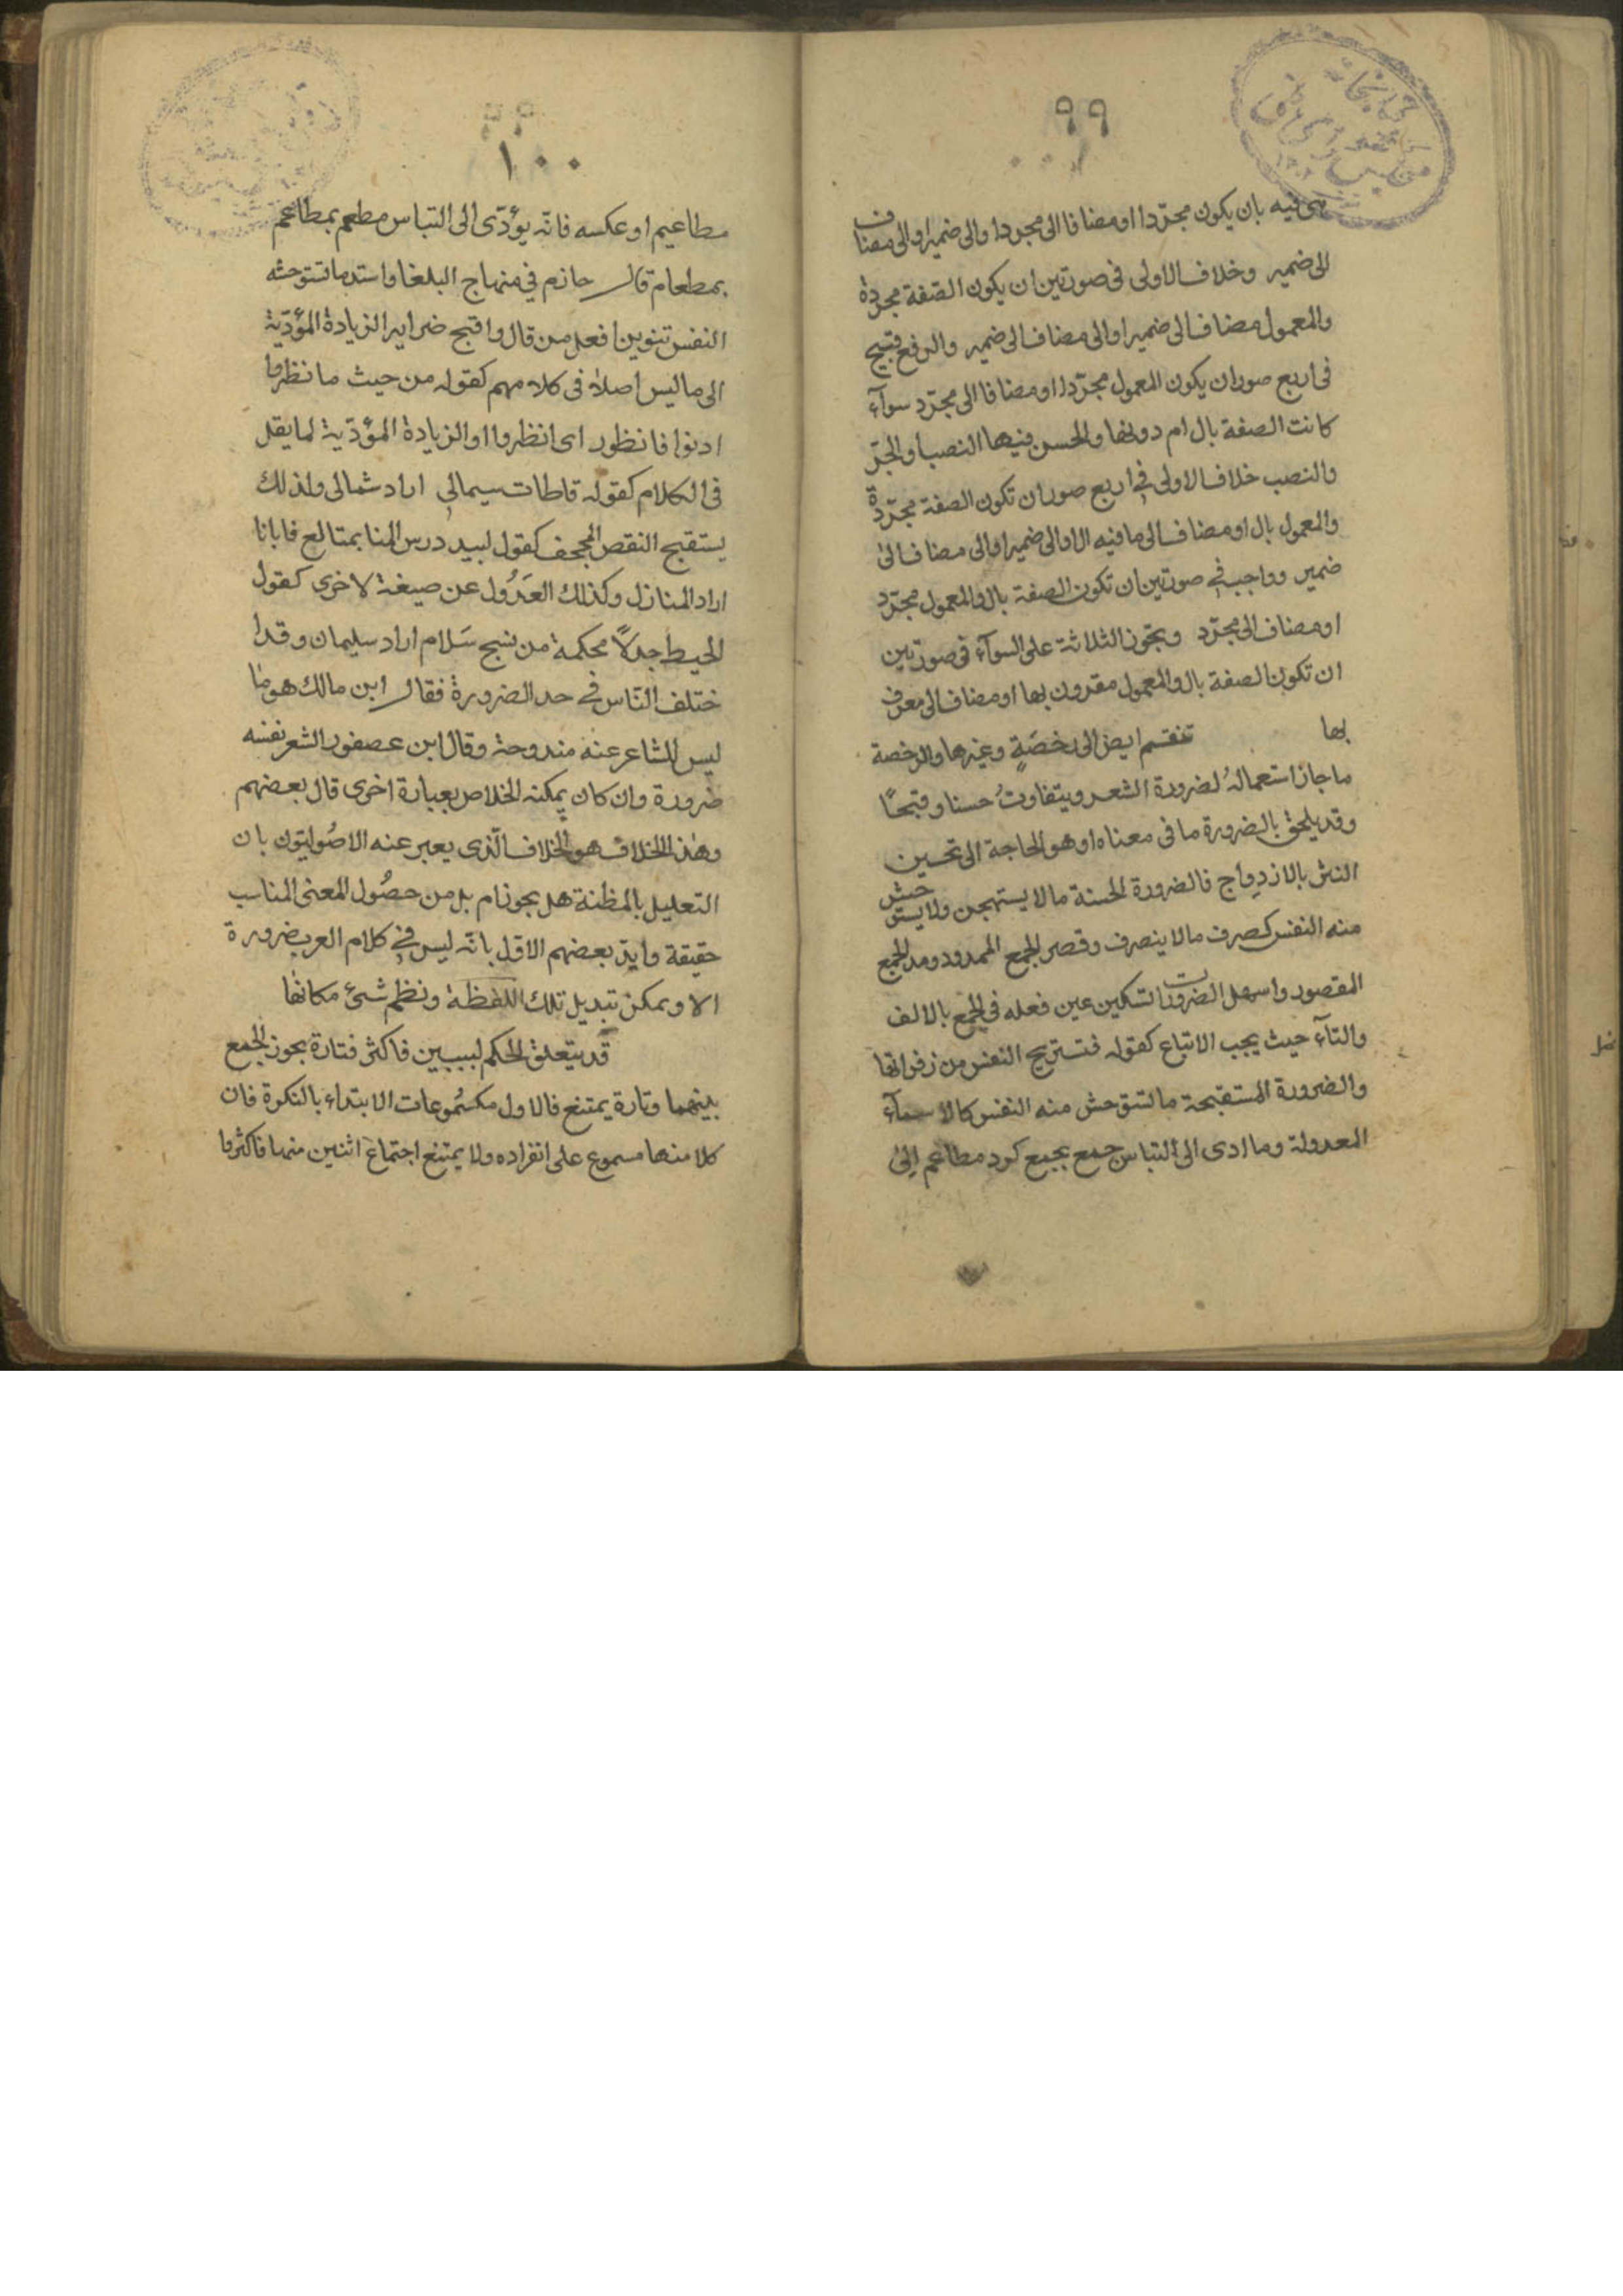 ٩٩
هى فيه بان يكون مجرّدا او مضافا الى مجرد او الى ضمير او الى مضاف
الى ضمير وخلاف الاولى فى صورتين ان يكون الصّفة مجردة
والمعمول مضاف الى ضمير او الى مضاف الى ضمير والرفع قبيح
فى اربع صور ان يكون المعمول مجرّدا او مضافا الى مجرّد سوآء
كانت الصفة بال ام دونها والحسن فيها النصب او الجرّ
والنصب خلاف الاولى فى اربع صور ان تكون الصفة مجرّدة
والمعمول بال او مضاف الى ما فيه ال او الى ضمير او الى مضاف الى
ضمير وواجب فى صورتين ان تكون الصفة بال والمعمول مجرّد
او مضاف الى مجرّد وبجّوز الثلاثة على السوآء فى صورتين
ان تكون الصفة بال والمعمول مقرون بها او مضاف الى معرف
بها تنقسم ايض الى رخصَةٍ وغيرها والرخصة
ما جاز استعمالهُ لضرورة الشعر ويتفاوتُ حسنا وقبحًا
وقد يلحق بالضرورة ما فى معناه وهو الحاجة الى تحسين
النثر بالازدواج فالضرورة الحسنة ما لا يستهجن ولا يستوحش
منه النفس كصرف ما لا ينصرف وقصر الجمع الممدود ومد الجمع
المقصور واسهل الضرورات تسكين عين فعله فى الجمع بالالف
والتآء حيث يجب الاتباع كقوله فتستريح النفس من زفراتها
والضرورة المستقبحة ما تستوحش منه النفس كالاسمآء
المعدولة وما ادى الى التباس جمع بجمع كرد مطاعم الى
١٠٠
مطاعيم او عكسه فانّه يؤدّى الى التباس مطعم بمطاعم
بمطعام قال حازم فى منهاج البلغا واشد ما تستوحشه
النفس تنوين افعل من قال واقبح ضراير الزيادة المؤدّية
الى ما ليس اصلا فى كلامهم كقوله من حيث ما نظروا
ادنوا فانظور اى انظروا او الزيادة المؤدّية لما يقل
فى الكلام كقوله قاطات سيمالى اراد شمالى ولذلك
يستقبح النقص المجحف كقول لبيد درس المنا بمتالع فابانا
اراد المنازل وكذلك العَدُول عن صيغة لاخرى كقول
الحيط جدلًا محكمة من نسج سَلام اراد سليمان وقد ا
ختلف النّاس فى حد الضرورة فقال ابن مالك هو ما
ليس للشاعر عنه مندوحة وقال ابن عصفور الشعر نفسه
ضرورة وان كان يمكنه الخلاص بعبارة اخرى قال بعضهم
وهذا الخلاف هو الخلاف الّذى يعبر عنه الاصُوليّون بان
التعليل بالمظنة هل يجوز ام بل من حصُول المعنى المناسب
حقيقة وايّد بعضهم الاوّل بانّه ليس فى كلام العرب ضرورة
الا ويمكن تبديل تلك اللفظة ونظم شىء مكانها
قد يتعلق الحكم لسببين فاكثر فتارة يجوز الجمع
بينهما وتارة يمتنع فالاول مكسُموعات الابتداء بالنكرة فان
كلا منها مسموع على انفراده ولا يمتنع اجتماع اثنين منها فاكثر وا